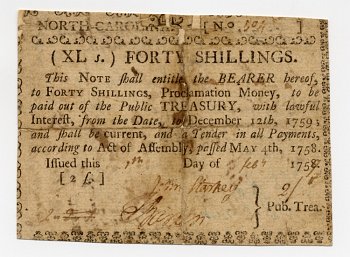 NORTH-CAROLINA. [No.
(XL s.) FORTY SHILLINGS.
This NOTE shall entitle the BEARER hereof,
to FORTY SHILLINGS, Proclamation Money, to be
paid out of the Public TREASURY, with lawful
Interest, from the Date, to December 12th, 1759;
and shall be current, and a Tender in all Payments,
according to Act of Assembly, passed MAY 4th, 1758.
Issued this Day of 1758.
[2 £.]
John Starkey
} Pub. Trea.